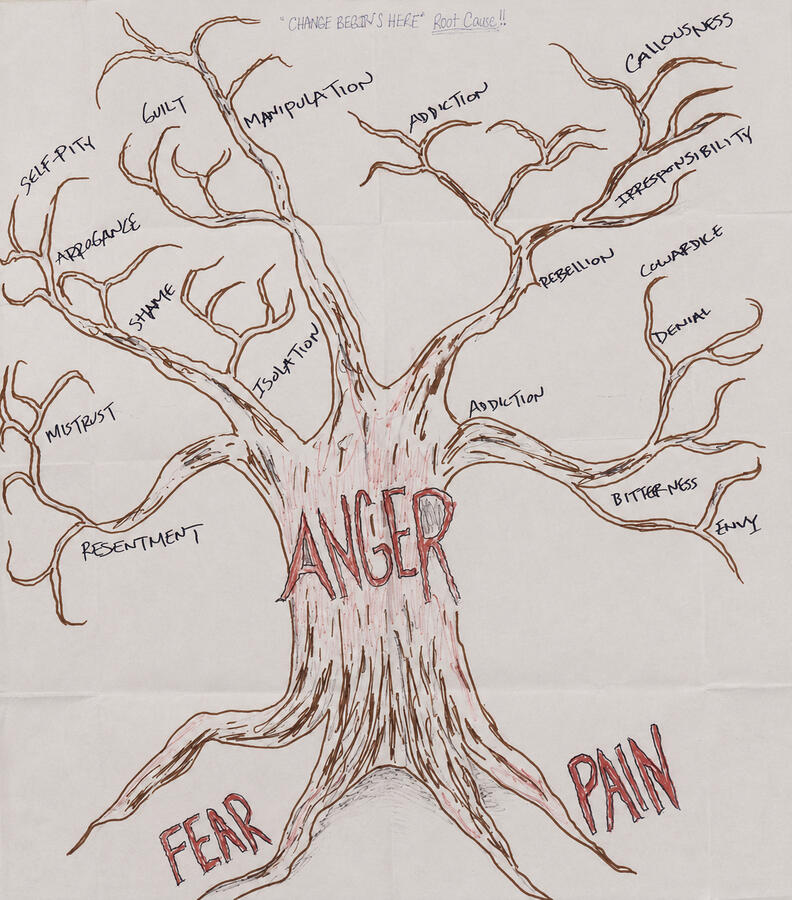 "CHANGE BEGINS HERE" Root Cause!!
CALLOUSNESS
GUILT
MANIPULATION
ADDICTION
SELF-PITY
IRRESPONSIBILITY
ARROGANCE
COWARDICE
REBELLION
SHAME
DENIAL
ISOLATION
ADDICTION
MISTRUST
BITTERNESS
RESENTMENT
ENVY
ANGER
FEAR
PAIN